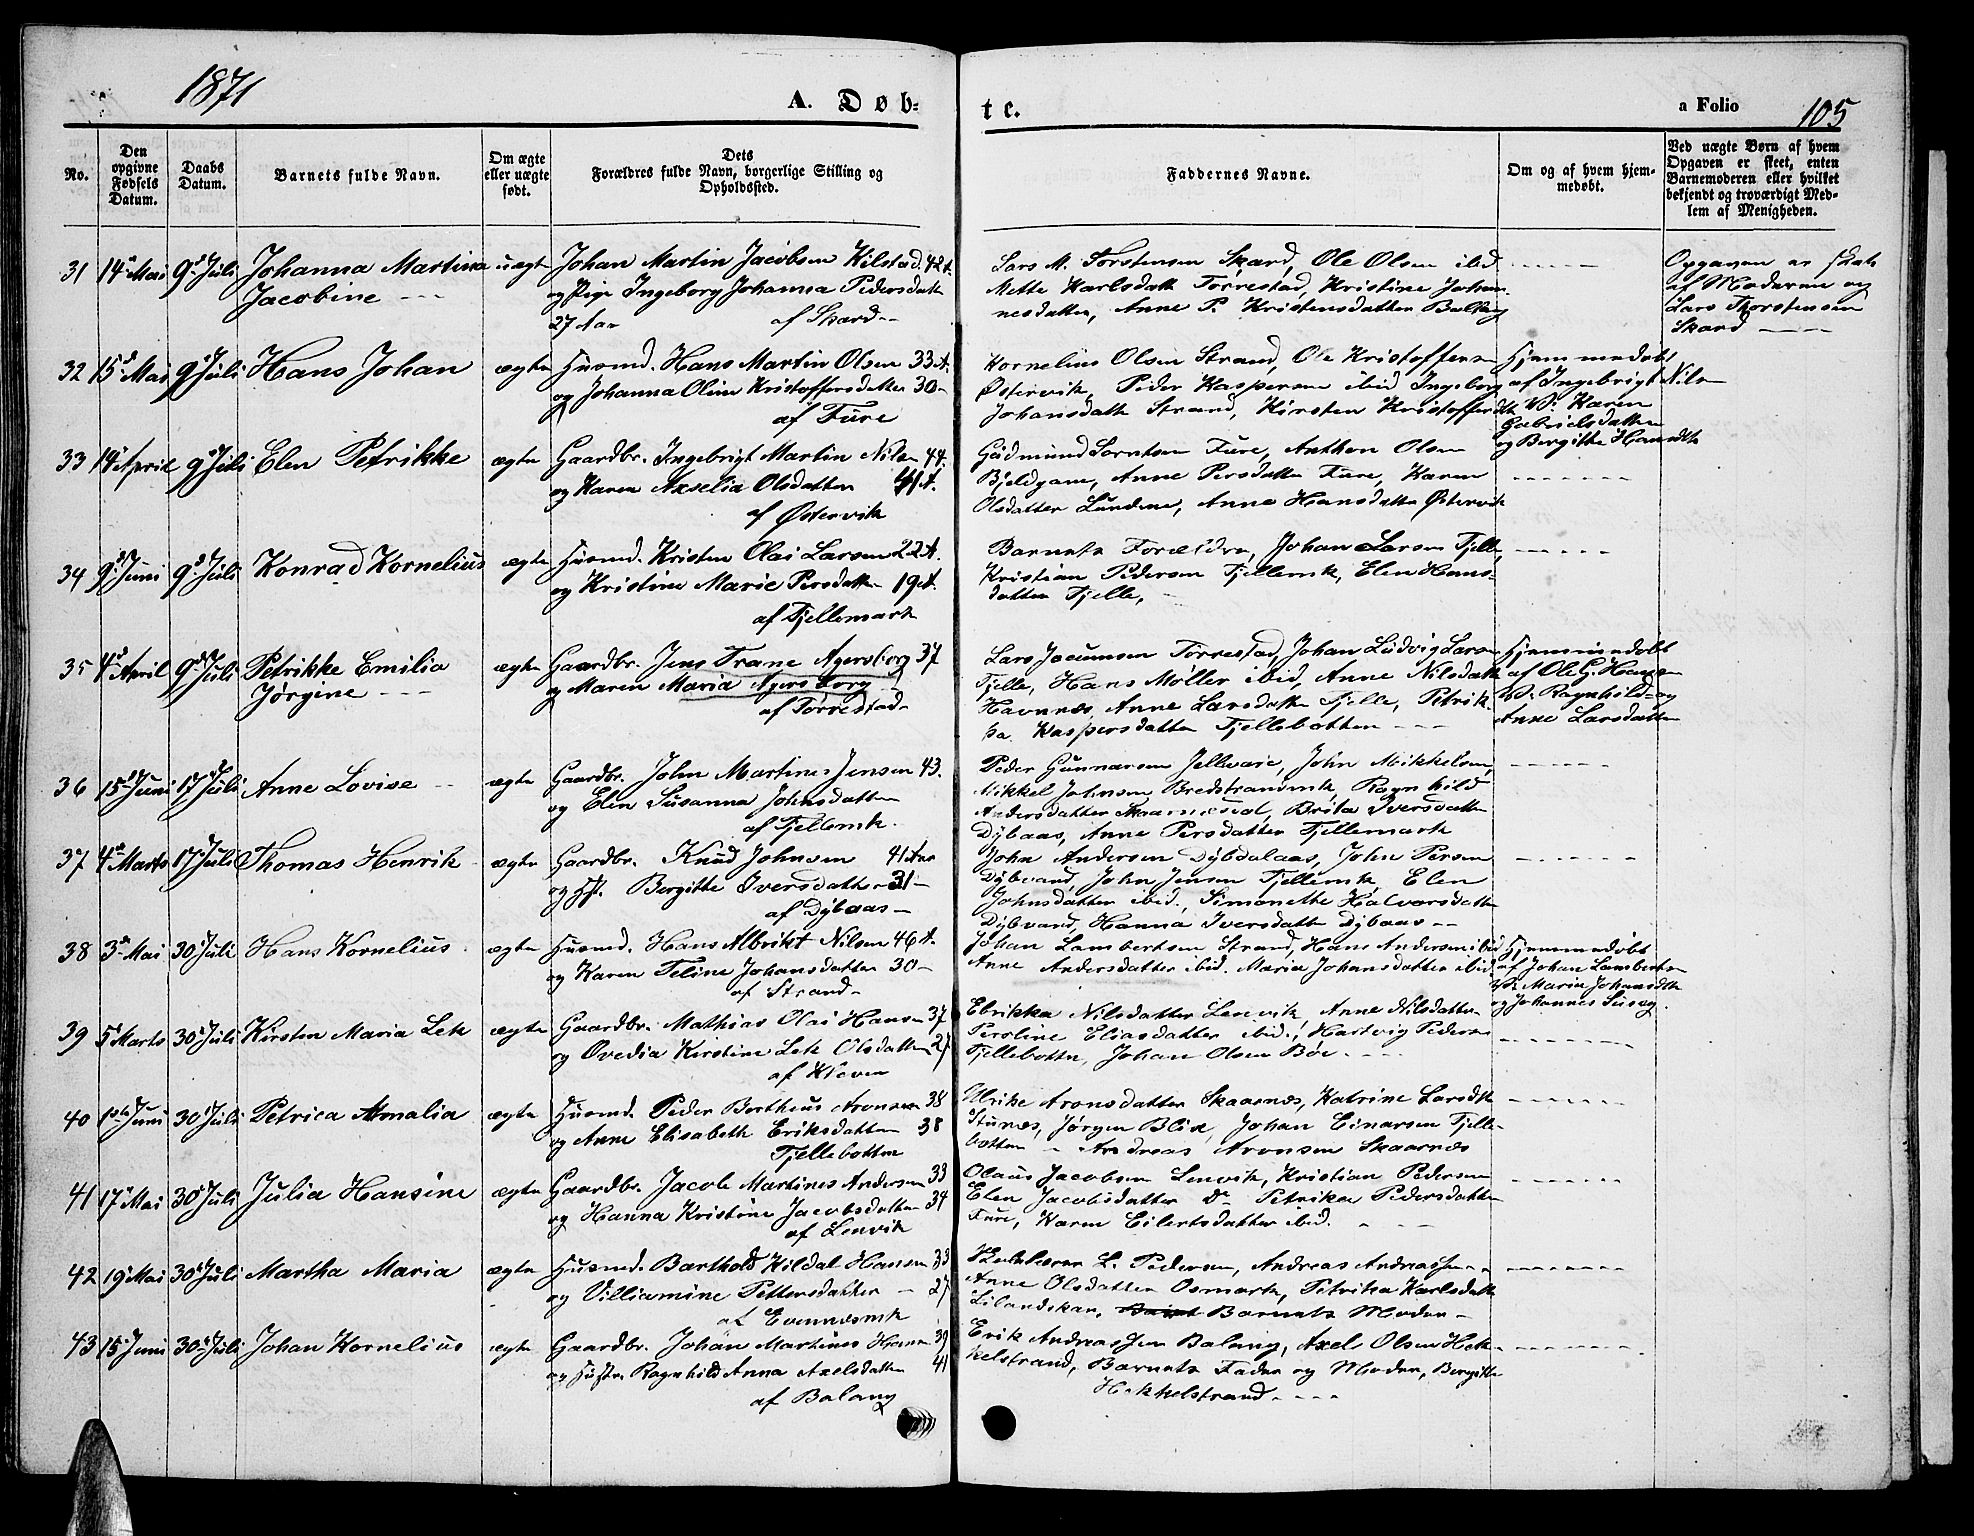 1871
A. Døb-
te.
a Folio 105
No.
Den opgivne Fødsels Datum.
Daabs Datum.
Barnets fulde Navn.
Om ægte eller uægte født.
Dets Forældres fulde Navn, borgerlige Stilling og Opholdssted.
Faddernes Navne.
Om og af hvem hjemmedøbt.
Ved uægte Børn af hvem Opgaven er skeet, enten Barnemoderen eller hvilket bekjendt og troværdigt Medlem af Menigheden.
31 14 Mai 9 Juli Johanna Martina uægte Johan Martin Jacobsen Kilstad 42 A.
Jacobine og Pige Ingeborg Johanna Pedersdatt
27 Aar af Skard
Lars M. Torstensen Skard, Ole Olsen ibid
Mette Karlsdatt Torrestad, Kristine Johan-
nesdatter, Anne P. Kristensdatter Balteng
Opgaven er skeet
af Moderen og
Lars Thorstensen
Skard
32 15 Mai 9 Juli Hans Johan ægte Husmd. Hans Martin Olsen 33 A.
og Johanna Oline Kristoffersdatter 30
af Fure
Kornelius Olsen Strand, Ole Kristoffersen
Østervik, Peder Kaspersen ibid Ingeborg
Johansdatt Strand, Kirsten Kristoffersdt
Hjemmedøbt
af Ingebrigt Nilsen
V: Karen
Gabrielsdatter
og Bergitte Hansdt
33 14 April 9 Juli Elen Petrikke ægte Gaardbr. Ingebrigt Martin Nilsen 44
og Karen Axselia Olsdatter 41 A.
af Østervik
Gudmund Lorntsen Fure, Anthon Olsen
Bjeldgam, Anne Persdatter Fure, Karen
Olsdatter Lundene, Anne Hansdatter Østervik
34 9 Juni 9 Juli Konrad Kornelius ægte Husmd. Kristen Olai Larsen 22 A.
og Kristine Marie Persdatter 19 A.
af Tjellemark
Barnets Forældre, Johan Larsen Tjelle,
Kristian Pedersen Tjellemk, Elen Hans-
datter Tjelle,
35 4 April 9 Juli Petrikke Emilia ægte Gaardbr. Jens Trane Agersborg 37
Jørgene og Maren Maria Agersborg
af Torrestad
Lars Jacumsen Torrestad, Johan Ludvig Larsen
Tjelle, Hans Møller ibid, Anne Nilsdatter
Havnnæs, Anne Larsdatter Tjelle, Petrik-
ka Kaspersdatter Tjellebotten
Hjemmedøbt
af Ole G. Hansen
V: Ragnhild og
Anne Larsdatter
36 15 Juni 17 Juli Anne Lovise ægte Gaardbr. John Martines Jensen 43.
og Elen Susanna Johnsdatter
af Tjellemk.
Peder Gunnarsen Jellvare, John Mikkelsen,
Mikkel Johnsen Bredstrandmk, Ragnhild
Andersdatter Skaarnæsdal, Brita Iversdatter
Dybaas, Anne Persdatter Tjellemark
37 4 Marts 17 Juli Thomas Henrik ægte Gaardbr. Knud Johnsen 41 Aar
og Hst. Bergitte Iversdatter 31
af Dybaas
John Andersen Dybdalaas, John Persen
Dybvand, John Jensen Tjellemk, Elen
Johnsdatter ibid, Simonette Halvorsdatter
Dybvand, Hanna Iversdatter Dybaas
38 3 Mai 30 Juli Hans Kornelius ægte Husmd. Hans Albrikt Nilsen 46 A.
og Karen Teline Johansdatter 30
af Strand
Johan Lambertsen Strand, Hans Andersen ibid
Anne Andersdatter ibid. Maria Johansdatter ibid
Hjemmedøbt
af Johan Lambertsen
V: Maria Johansdt
og Johannes
39 5 Marts 30 Juli Kirsten Maria Lek ægte Gaardbr. Mathias Olai Hansen 37
og Ovedia Kirstine Lek Olsdatter 27
af Kloven
Elrikka Nilsdatter Lenvik, Anne Nilsdatter
Peroline Eliasdatter ibid., Hartvig Pedersen
Tjellebotten, Johan Olsen Bøe
40 1ste Juni 30 Juli Petrica Amalia ægte Husmd. Peder Bertheus Aronsen 38
og Anne Elisabeth Eriksdatter 38
Tjellebotten
Ulrike Aronsdatter Skaarnæs, Katrine Larsdt
Stunæs, Jørgen Blix, Johan Einarsen Tjelle-
botten Andreas Aronsen Skaarnæs
41 17 Mai 30 Juli Julia Hansine ægte Gaardbr. Jacob Martines Andersen 33
og Hanna Kristine Jacobsdatter 34
af Lenvik
Olaus Jacobsen Lenvik, Kristian Pedersen
Elen Jacobsdatter Do Petrikea Pedersdatter
Fure, Karen Eilertsdatter ibid.
42 19 Mai 30 Juli Martha Maria ægte Husmd. Barthold Kildal Hansen 33
og Villiamine Pettersdatter 27
af Evennesmk
L. Pedersen, Andreas Andreassen
Anne Olsdatter Osmark, Petrika Karlsdatt
Lilandskar, Barnets Moder
43 15 Juni 30 Juli Johan Kornelius ægte Gaardbr. Johan Martines Hansen 39
og Hustr. Ragnhild Anna Axelsdatter 41
af Balang
Erik Andreassen Balang, Axel Olsen Hek-
kelstrand, Barnets Fader og Moder, Bergitte
Hekkelstrand